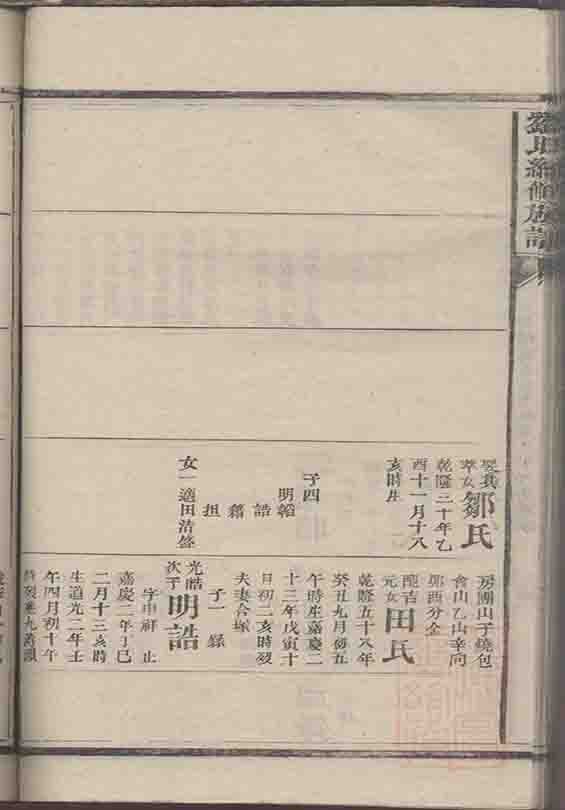 氏續修族譜
娶
萃女
鄒氏
乾隆三十年乙
酉十一月十八
亥時生
子四
明韜
誥
籍
担
女一適田浩盛
房團山子燒包
會山乙山辛向
卯酉分金
隴吉
元女
田氏
乾隆五十八年
癸丑九月初五
午時生嘉慶二
十三年戊寅十
日初二亥時歿
夫妻合塚
子一
光晧
次子
明誥
字申祥
嘉慶二年丁巳
二月十三亥時
生道光二年壬
午四月初十午